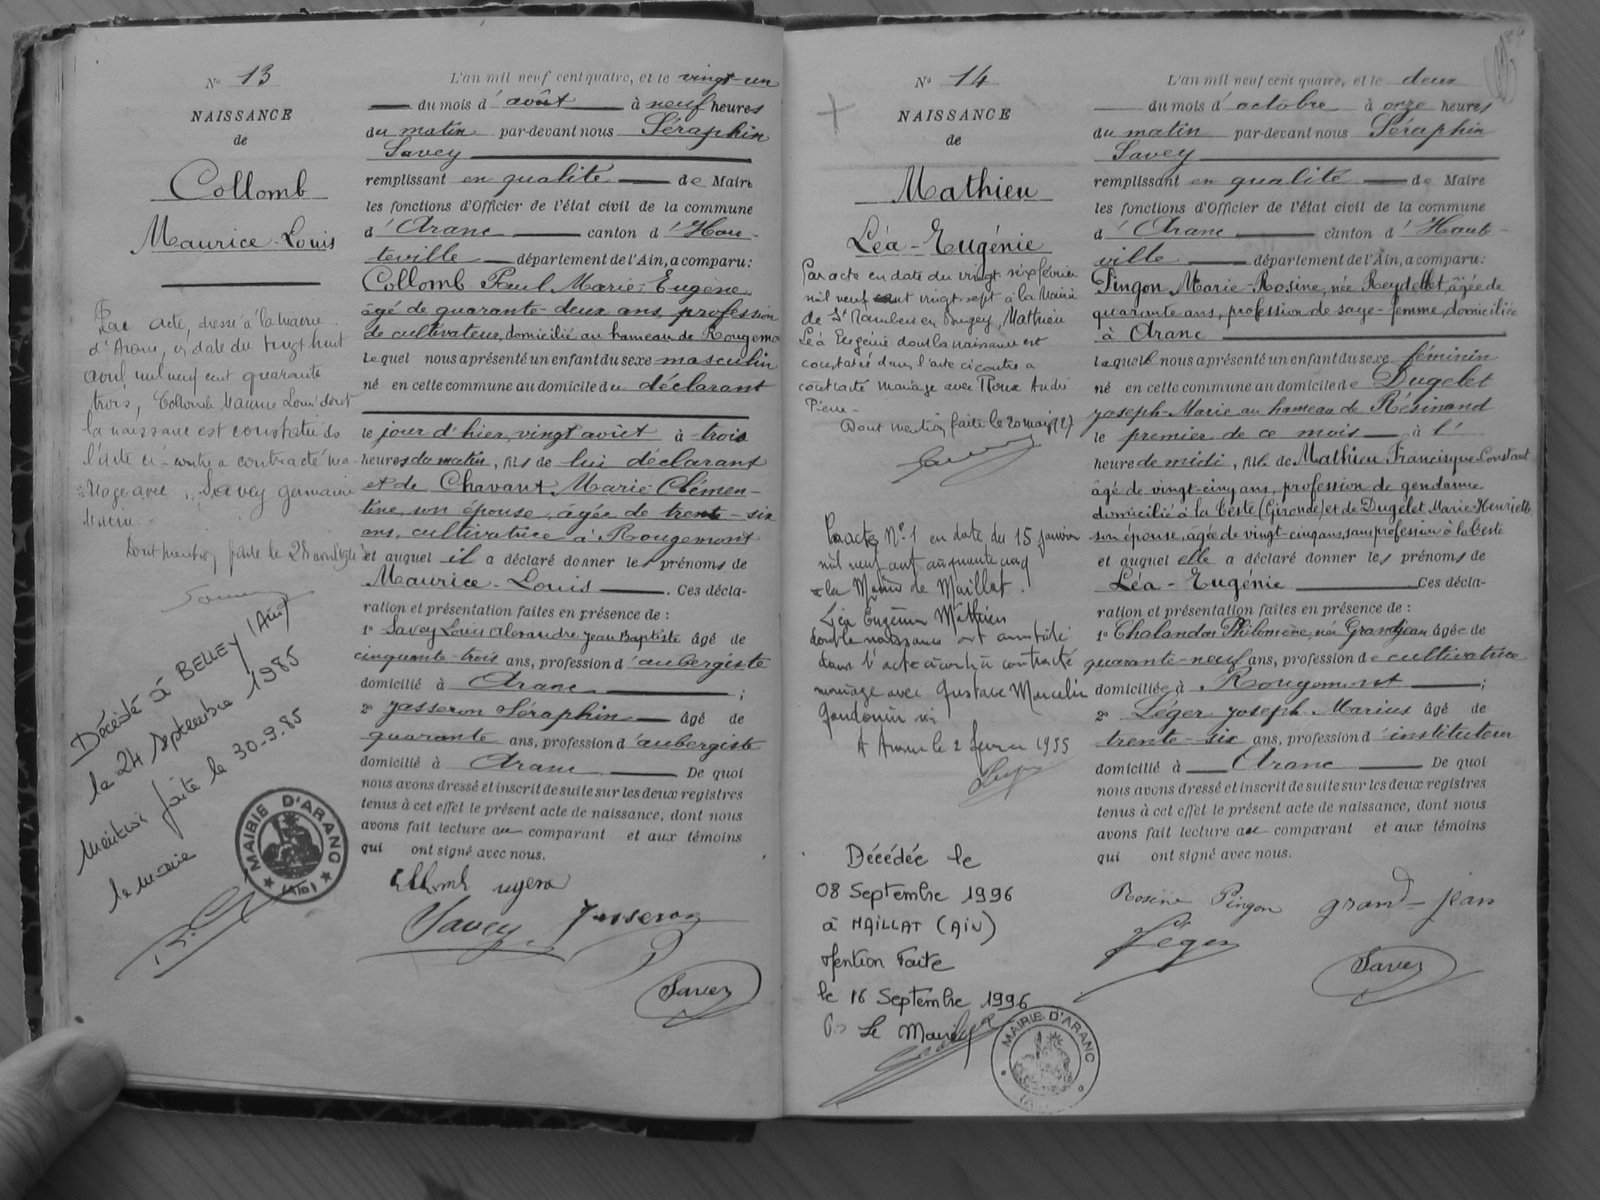 N° 13
NAISSANCE
de
Collomb
Maurice-Louis
Par acte, dressé à la mairie
d'Aranc, en date du vingt huit
avril mil neuf cent quarante
trois, Collomb Maurice Louis dont
la naissance est constatée dans
l'acte ci-contre a contracté ma-
riage avec Savey Germaine
Dont mention faite le 28 avril
Décédé à BELLEY (Ain)
le 24 Septembre 1985
Mention faite le 30-9-85
le maire
MAIRIE D'ARANC
(AIN)
L'an mil neuf cent quatre, et le vingt-un
du mois d'août à neuf heures
du matin par-devant nous Séraphin
Savey
remplissant en qualité de Maire
les fonctions d'Officier de l'état civil de la commune
d'Aranc canton d'Hau-
teville département de l'Ain, a comparu:
Collomb Paul Marie-Eugène
âgé de quarante-deux ans, profession
de cultivateur, domicilié au hameau de Rougemont
Lequel nous a présenté un enfant du sexe masculin
né en cette commune au domicile du déclarant
le jour d'hier, vingt août à trois
heures du matin, fils de lui déclarant
et de Chavant Marie-Clémen-
tine, son épouse, âgée de trente-six
ans, cultivatrice à Rougemont
et auquel il a déclaré donner les prénoms de
Maurice-Louis. Ces décla-
ration et présentation faites en présence de :
1° Savey Louis Alexandre Jean Baptiste âgé de
cinquante-trois ans, profession d'aubergiste
domicilié à Aranc ;
2° Jasseron Séraphin âgé de
quarante ans, profession d'aubergiste
domicilié à Aranc De quoi
nous avons dressé et inscrit de suite sur les deux registres
tenus à cet effet le présent acte de naissance, dont nous
avons fait lecture au comparant et aux témoins
qui ont signé avec nous.
Savey Jasseron
Savey
N° 14
NAISSANCE
de
Mathieu
Léa-Eugénie
Par acte en date du vingt six février
mil neuf cent vingt sept à la Mairie
de St Rambert en Bugey, Mathieu
Léa Eugénie dont la naissance est
constatée dans l'acte ci contre a
contracté mariage avec Roux André
Pierre
Dont mention faite le 20 mars 1927
Par acte N° 1 en date du 15 janvier
mil neuf cent cinquante cinq
à la Mairie de Maillat.
Léa Eugénie Mathieu
dont la naissance est constatée
dans l'acte ci contre a contracté
mariage avec Gustave Marcelin
A Aranc le 2 février 1955
Décédée le
08 Septembre 1996
à MAILLAT (AIN)
Mention Faite
le 16 Septembre 1996
Le Maire
MAIRIE D'ARANC
L'an mil neuf cent quatre, et le deux
du mois d'octobre à onze heures
du matin par-devant nous Séraphin
Savey
remplissant en qualité de Maire
les fonctions d'Officier de l'état civil de la commune
d'Aranc canton d'Haute-
ville département de l'Ain, a comparu:
Pingon Marie-Rosine, née Reydellet, âgée de
quarante ans, profession de sage-femme, domiciliée
à Aranc
Laquelle nous a présenté un enfant du sexe féminin
né en cette commune au domicile de Dugelet
Joseph-Marie au hameau de Résinand
le premier de ce mois à l'
heure de midi, fille de Mathieu, Francisque-Constant
âgé de vingt-cinq ans, profession de gendarme
domicilié à la Teste (Gironde) et de Dugelet Marie-Henriette
son épouse, âgée de vingt-cinq ans, sans profession à la Teste
et auquel elle a déclaré donner les prénoms de
Léa-Eugénie Ces décla-
ration et présentation faites en présence de :
1° Chalandon Philomène, née Grandjean âgée de
quarante-neuf ans, profession de cultivatrice
domiciliée à Rougemont ;
2° Léger Joseph Marius âgé de
trente-six ans, profession d'instituteur
domicilié à Aranc De quoi
nous avons dressé et inscrit de suite sur les deux registres
tenus à cet effet le présent acte de naissance, dont nous
avons fait lecture au comparant et aux témoins
qui ont signé avec nous.
Rosine Pingon grand-jean
Léger
Savey